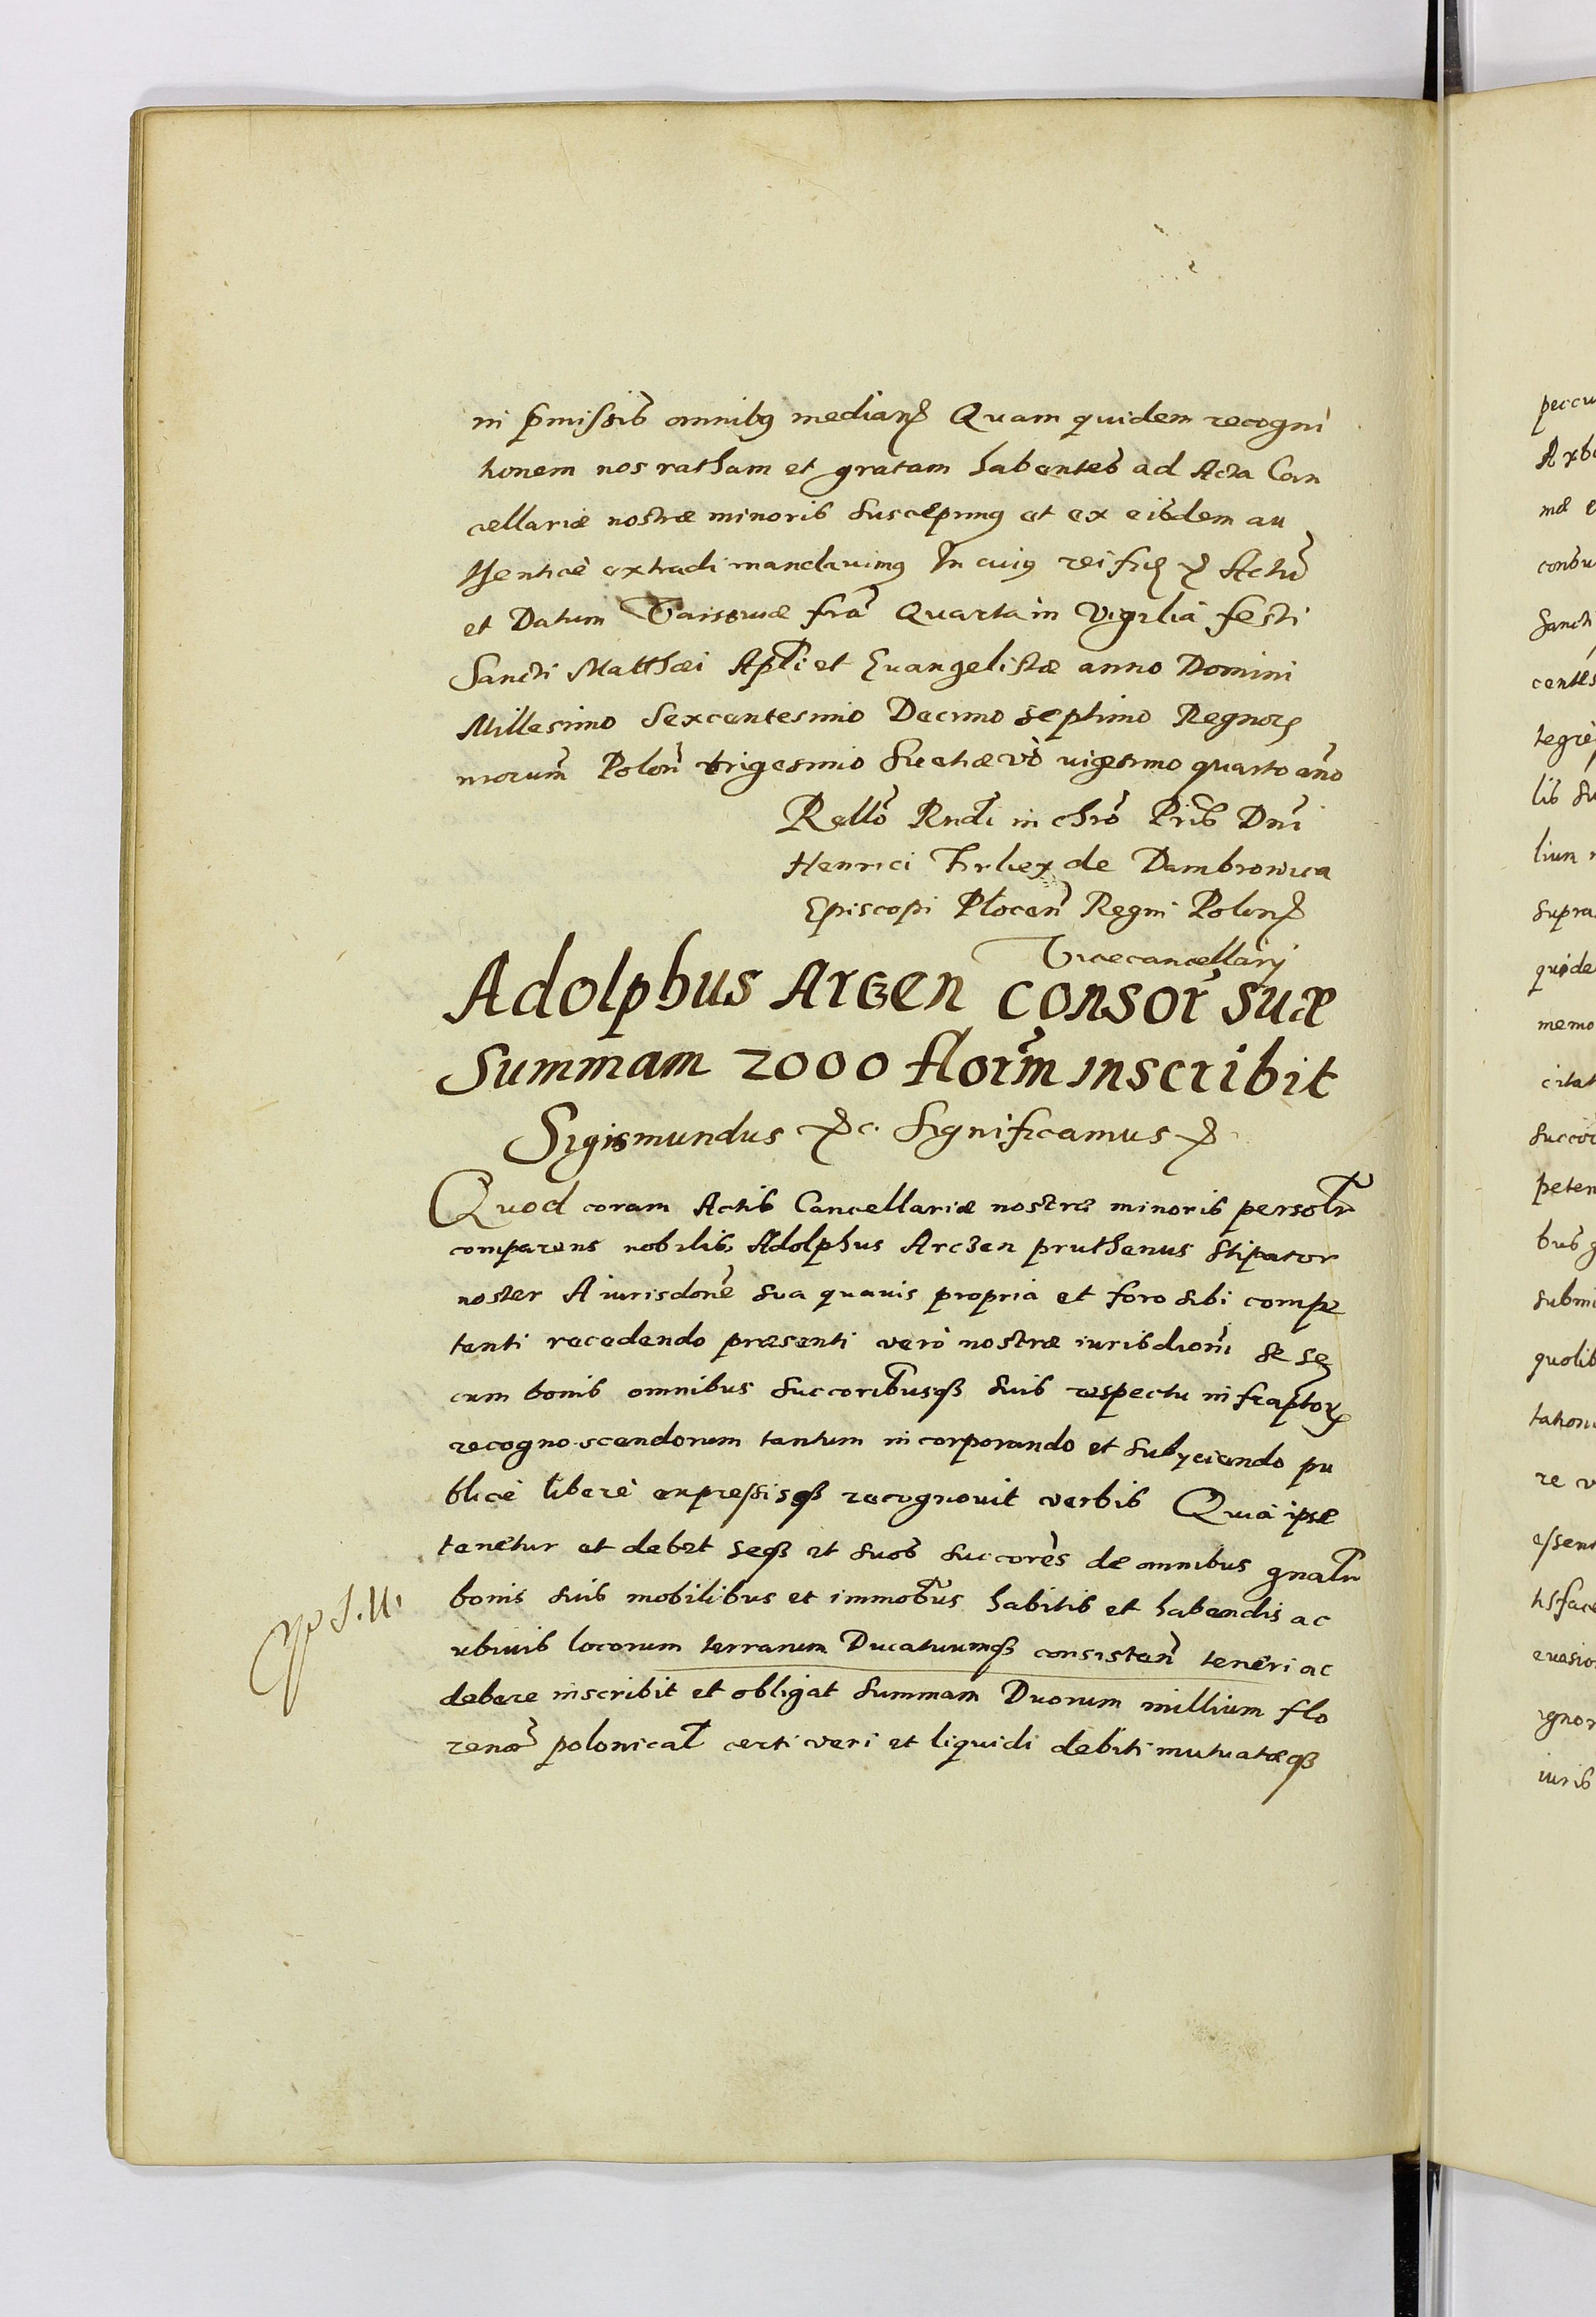 in p̃missis omnibus median̄ Quam quidem recogni
tionem nos ratham et gratam habentes ad Acta Can
cellariæ nostræ minoris suscepimus et ex eisdem au
thenticè extradi mandavimus In cuius rei fid Actũ
et Datum Varsoviæ fr̃a Quarta in Vigilia festi
Sancti Matthæi Apl̃i et Euangelistæ anno Domini
Millesimo Sexcentesimo Decimo septimo Regnor
nrorum̃ Polon̄ trigesimo Suetiæ vo uigesimo quarto año
Rel̃lo Rndĩ in chrõ Pris Dñi
Henrici Firliey de Dambrowica
Episcopi Plocen̄ Regni Polon
Vicecancellarij
Adolphus Arczen consor̃ suæ
Summam 2000 flor̃m inscribit
Sigismundus &c. Significamus &
Quod coram Actis Cancellariæ nostræ minoris persolr̃
comparens nobilis Adolphus Arczen pruthenus stipator
noster A iurisdone sua quavis propria et foro sibi compe
tenti recedendo præsenti verò nostræ iurisdioni se se
cum bonis omnibus succoribusqß suis respectu infraptor
recognoscendorum tantum incorporando et subyciendo pu
blicè liberè expressisqß recognovit verbis Quia ipse
tenetur et debet seqß et suos succorès de omnibus gnalr
bonis suis mobilibus et immobus habitis et habendis ac
ubivis locorum terrarum Ducatuumqß consisten̄ teneri ac
debere inscribit et obligat Summam Duorum millium flo
renõ polonical certi veri et liquidi debiti mutuatæqß